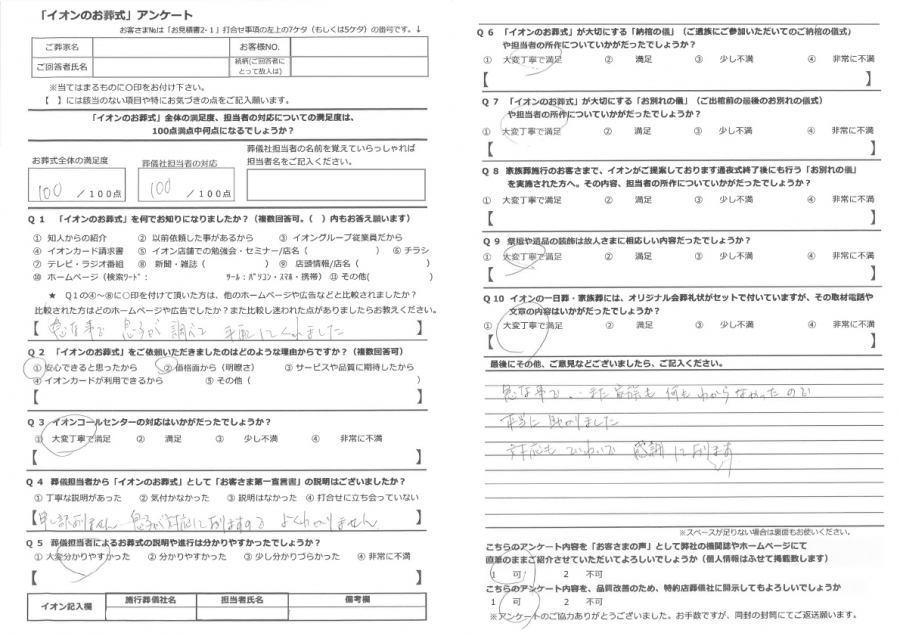 「イオンのお葬式」アンケート
お客さまNoは「お見積書2-1」打合せ事項の左上の7ケタ（もしくは5ケタ）の番号です。↓
ご葬家名 お客様NO.
ご回答者氏名 続柄(ご回答者にとって故人は)
※当てはまるものに○印をお付け下さい。
【 】には該当のない項目や特にお気づきの点をご記入願います。
「イオンのお葬式」全体の満足度、担当者の対応についての満足度は、
100点満点中何点になるでしょうか？
お葬式全体の満足度 葬儀社担当者の対応 葬儀社担当者の名前を覚えていらっしゃれば
担当者名をご記入ください。
100 / 100点 100 / 100点
Q 1 「イオンのお葬式」を何でお知りになりましたか？（複数回答可。（ ）内もお答え願います）
① 知人からの紹介 ② 以前依頼した事があるから ③ イオングループ従業員だから
④ イオンカード請求書 ⑤ イオン店舗での勉強会・セミナー/店名（ ） ⑥ チラシ
⑦ テレビ・ラジオ番組 ⑧ 新聞・雑誌（ ） ⑨ 店頭情報/店名（ ）
⑩ ホームページ（検索ワード： ツール：パソコン・スマホ・携帯） ⑪ その他( )
★ Q1の④～⑧に○印を付けて頂いた方は、他のホームページや広告などと比較されましたか？
比較された方はどのホームページや広告でしたか？また比較し迷われた点がありましたらお教えください。
【急な事で 息子が 調べて 手配してくれました 】
Q 2 「イオンのお葬式」をご依頼いただきましたのはどのような理由からですか？（複数回答可）
① 安心できると思ったから ② 価格面から（明瞭さ） ③ サービスや品質に期待したから
④ イオンカードが利用できるから ⑤ その他（ ）
【 】
Q 3 イオンコールセンターの対応はいかがだったでしょうか？
① 大変丁寧で満足 ② 満足 ③ 少し不満 ④ 非常に不満
【 】
Q 4 葬儀担当者から「イオンのお葬式」として「お客さま第一宣言書」の説明はございましたか？
① 丁寧な説明があった ② 気付かなかった ③ 説明はなかった ④ 打合せに立ち会っていない
【申し訳ありません 息子が対応しておりますので よくわかりません 】
Q 5 葬儀担当者によるお葬式の説明や進行は分かりやすかったでしょうか？
① 大変分かりやすかった ② 分かりやすかった ③ 少し分かりづらかった ④ 非常に不満
【 】
イオン記入欄 施行葬儀社名 担当者氏名 備考欄
Q 6 「イオンのお葬式」が大切にする「納棺の儀」（ご遺族にご参加いただいてのご納棺の儀式）
や担当者の所作についていかがだったでしょうか？
① 大変丁寧で満足 ② 満足 ③ 少し不満 ④ 非常に不満
【 】
Q 7 「イオンのお葬式」が大切にする「お別れの儀」（ご出棺前の最後のお別れの儀式）
や担当者の所作についていかがだったでしょうか？
① 大変丁寧で満足 ② 満足 ③ 少し不満 ④ 非常に不満
【 】
Q 8 家族葬施行のお客さまで、イオンがご提案しております通夜式終了後にも行う「お別れの儀」
を実施された方へ。その内容、担当者の所作についていかがだったでしょうか？
① 大変丁寧で満足 ② 満足 ③ 少し不満 ④ 非常に不満
【 】
Q 9 祭壇や遺品の装飾は故人さまに相応しい内容だったでしょうか？
① 大変丁寧で満足 ② 満足 ③ 少し不満 ④ 非常に不満
【 】
Q 10 イオンの一日葬・家族葬には、オリジナル会葬礼状がセットで付いていますが、その取材電話や
文章の内容はいかがだったでしょうか？
① 大変丁寧で満足 ② 満足 ③ 少し不満 ④ 非常に不満
【 】
最後にその他、ご意見などございましたら、ご記入ください。
急な事で、また家族も 何もわからなかったので
本当に助かりました
対応も ていねいで 感謝しております
※スペースが足りない場合は裏面もお使いください。
こちらのアンケート内容を「お客さまの声」として弊社の機関誌やホームページにて
直筆のままご紹介させていただいてよろしいでしょうか（個人情報はふせて掲載致します）
1 可 2 不可
こちらのアンケート内容を、品質改善のため、特約店葬儀社に開示してもよろしいでしょうか
1 可 2 不可
※アンケートのご協力ありがとうございました。お手数ですが、同封の封筒にてご返送願います。